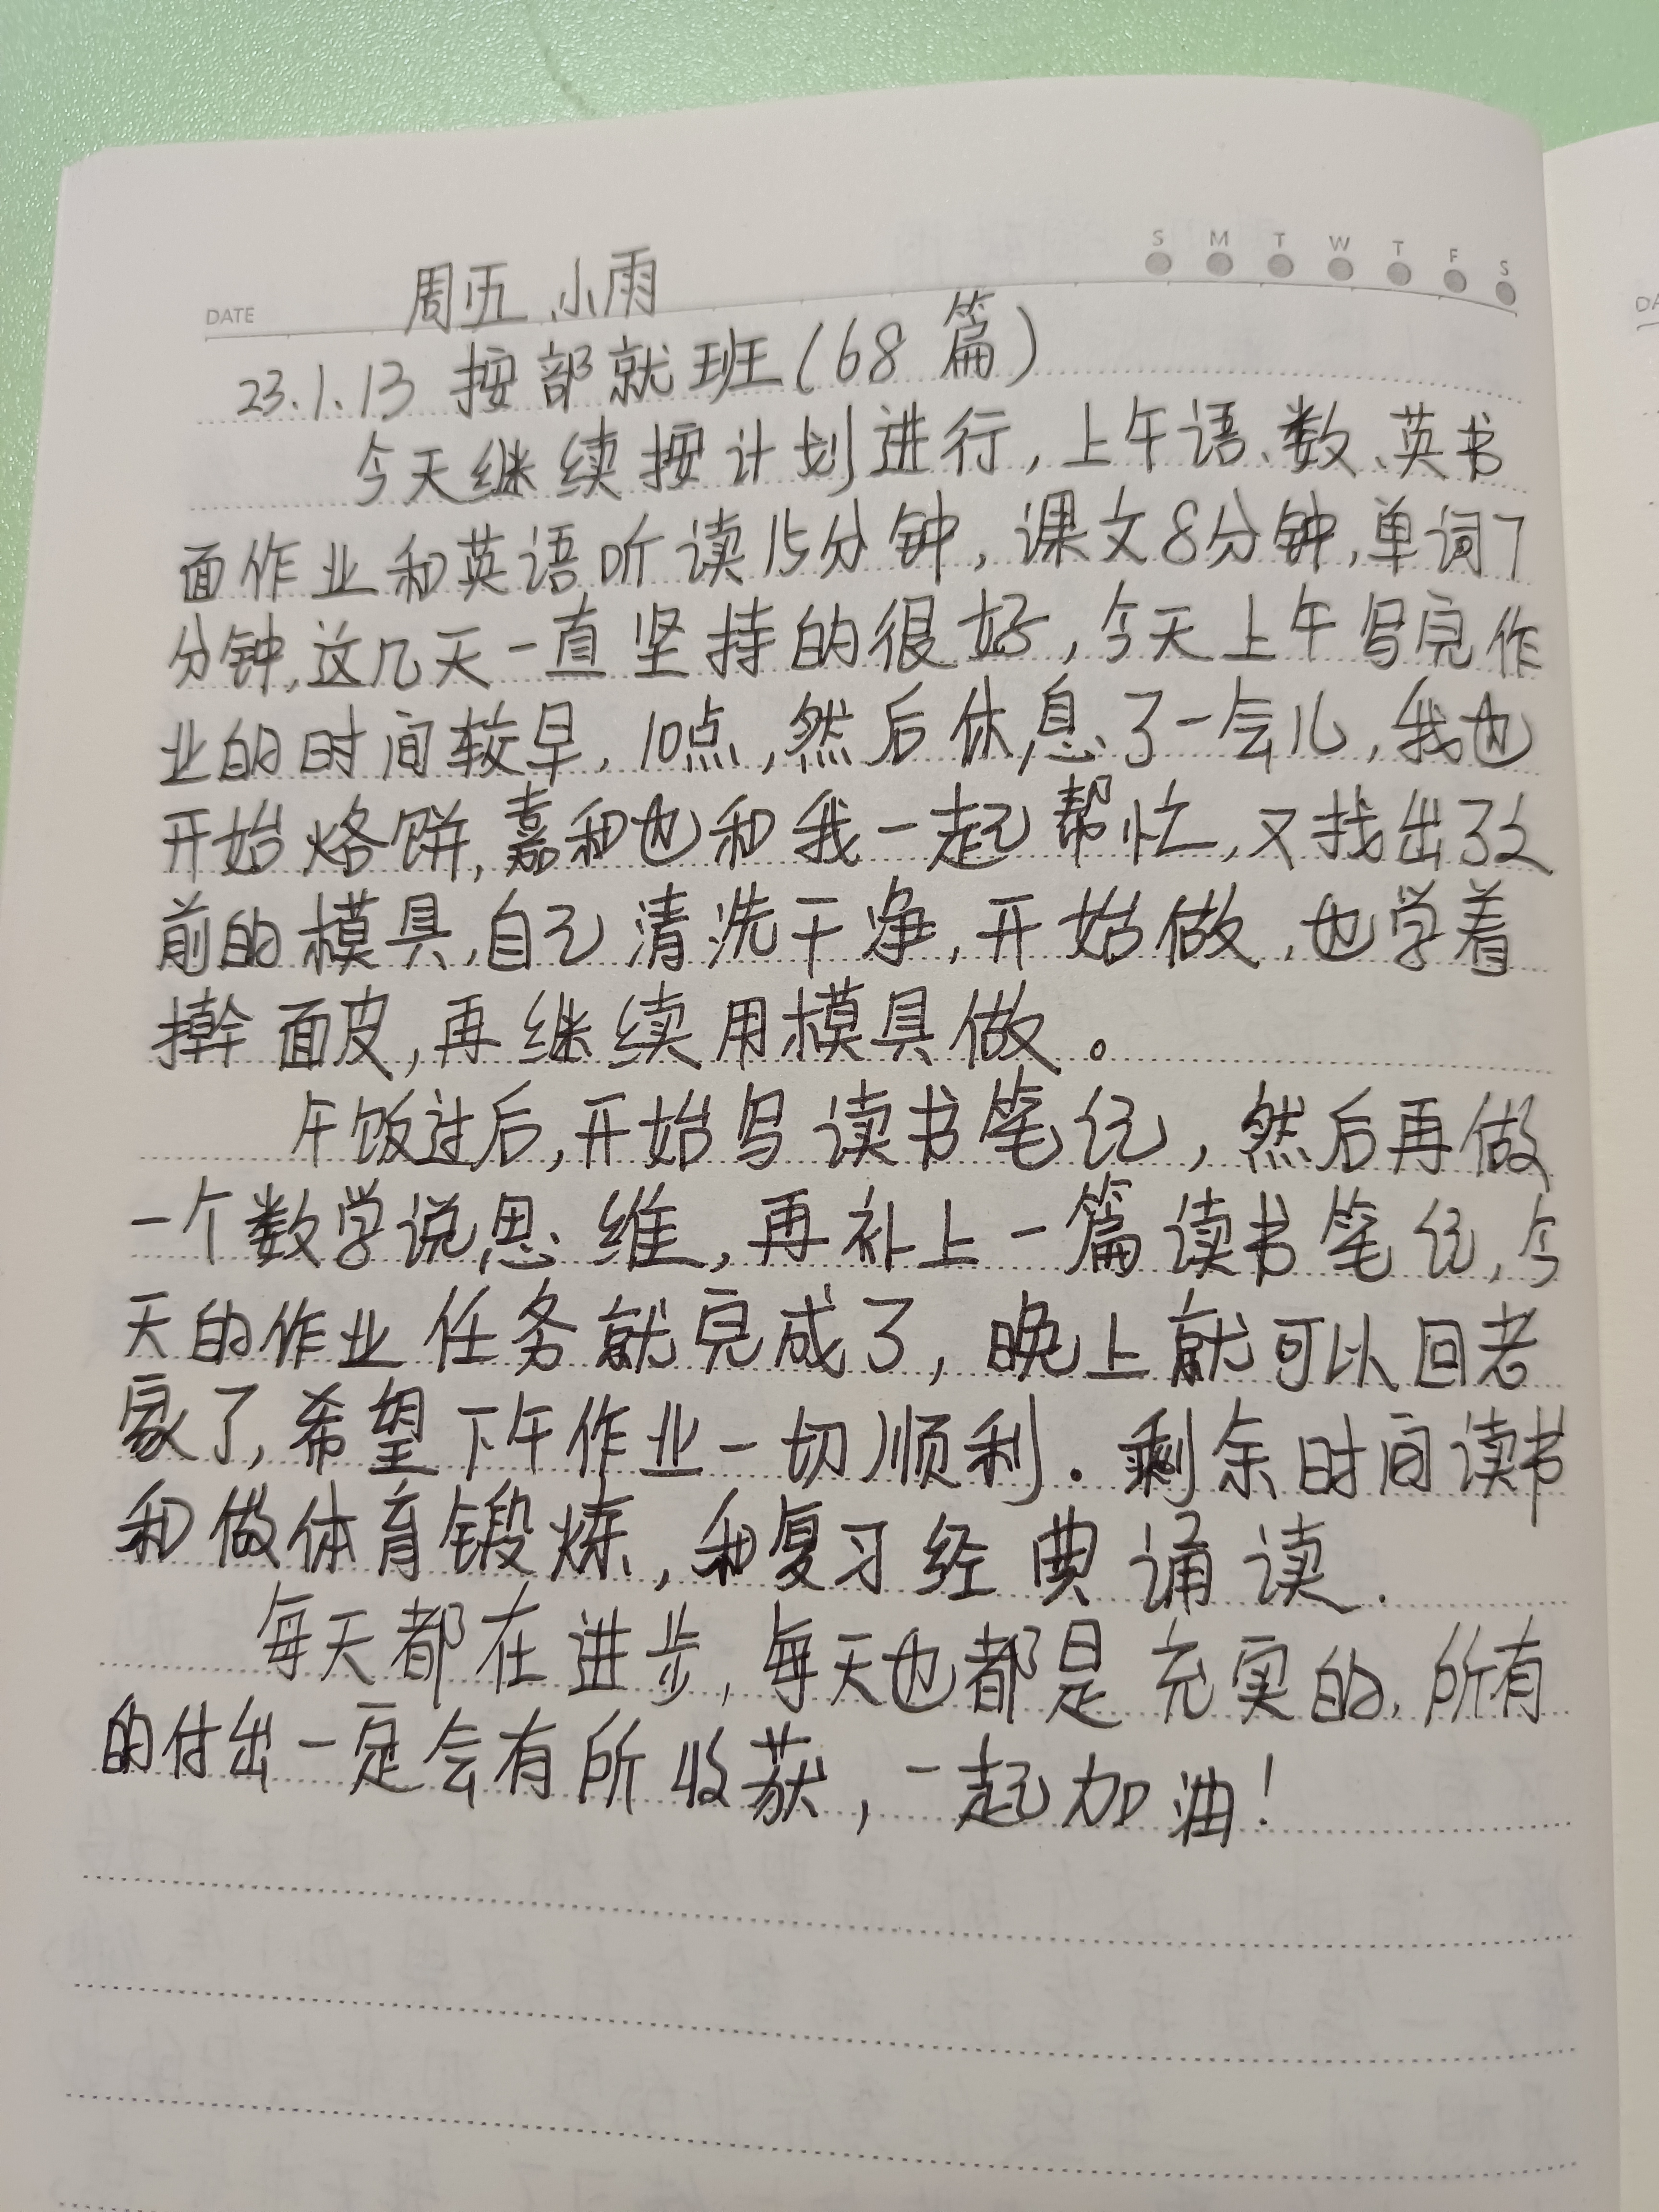 S M T W T F S
DATE 周五 小雨
23.1.13 按部就班(68篇)
今天继续按计划进行,上午语、数、英书
面作业和英语听读15分钟,课文8分钟,单词7
分钟,这几天一直坚持的很好,今天上午写完作
业的时间较早,10点,然后休息了一会儿,我也
开始烙饼,嘉和也和我一起帮忙,又找出了以
前的模具,自己清洗干净,开始做,也学着
擀面皮,再继续用模具做。
午饭过后,开始写读书笔记,然后再做
一个数学说思维,再补上一篇读书笔记,今
天的作业任务就完成了,晚上就可以回老
家了,希望下午作业一切顺利.剩余时间读书
和做体育锻炼,和复习经典诵读.
每天都在进步,每天也都是充实的,所有
的付出一定会有所收获,一起加油!